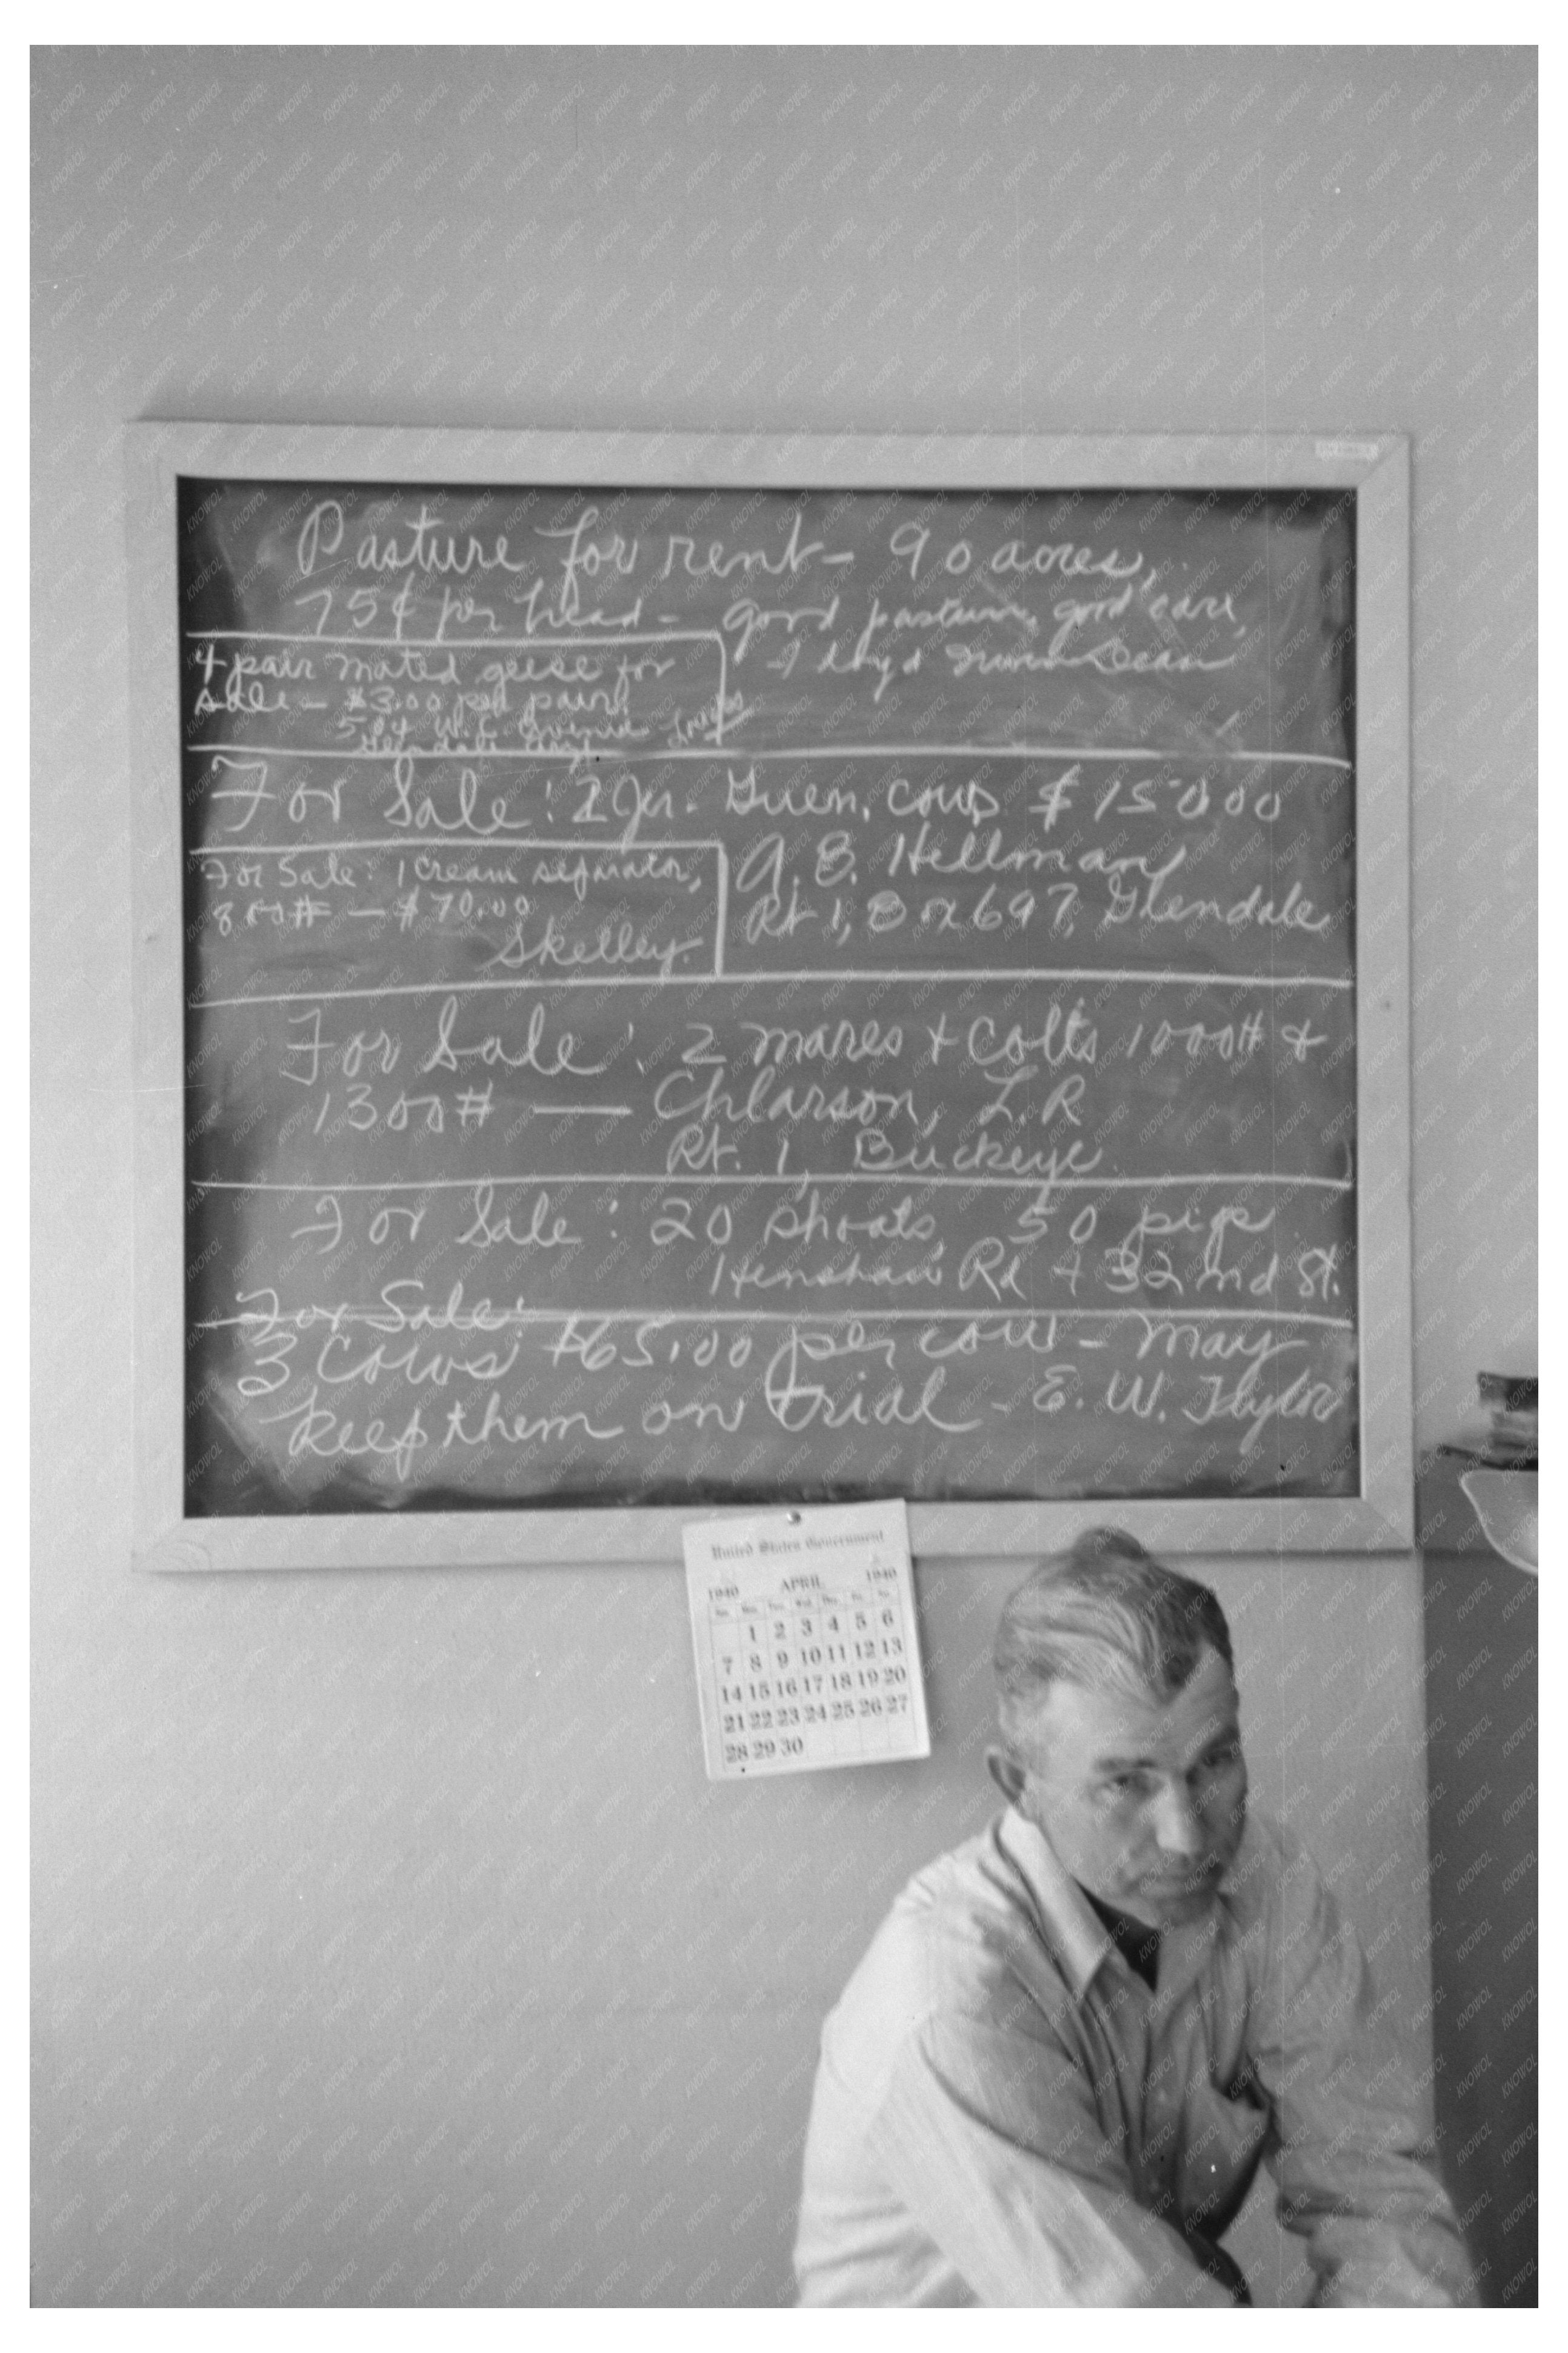 Pasture for rent - 90 acres,
75¢ per head - good pasture, good care,
4 pair mated geese for
sale - $3.00 per pair.
504 W. C. Avenue
Glendale Ariz.
For Sale: 2 Guern. cows $15000
A. E. Hellman
Rt 1, Box 697, Glendale
For Sale: 1 cream separator,
800# - $70.00
Skelley.
For Sale: 2 mares + Colts 1000# +
1300# — Chlarson, L. R
Rt. 1, Buckeye.
For Sale: 20 shoats, 50 pigs
Henshaw Rd + 32nd St.
For Sale:
3 Cows $65.00 per cow - May
keep them on trial - E. W. Taylor
United States Government
1940 APRIL 1940
1 2 3 4 5 6
7 8 9 10 11 12 13
14 15 16 17 18 19 20
21 22 23 24 25 26 27
28 29 30
KNOWOL